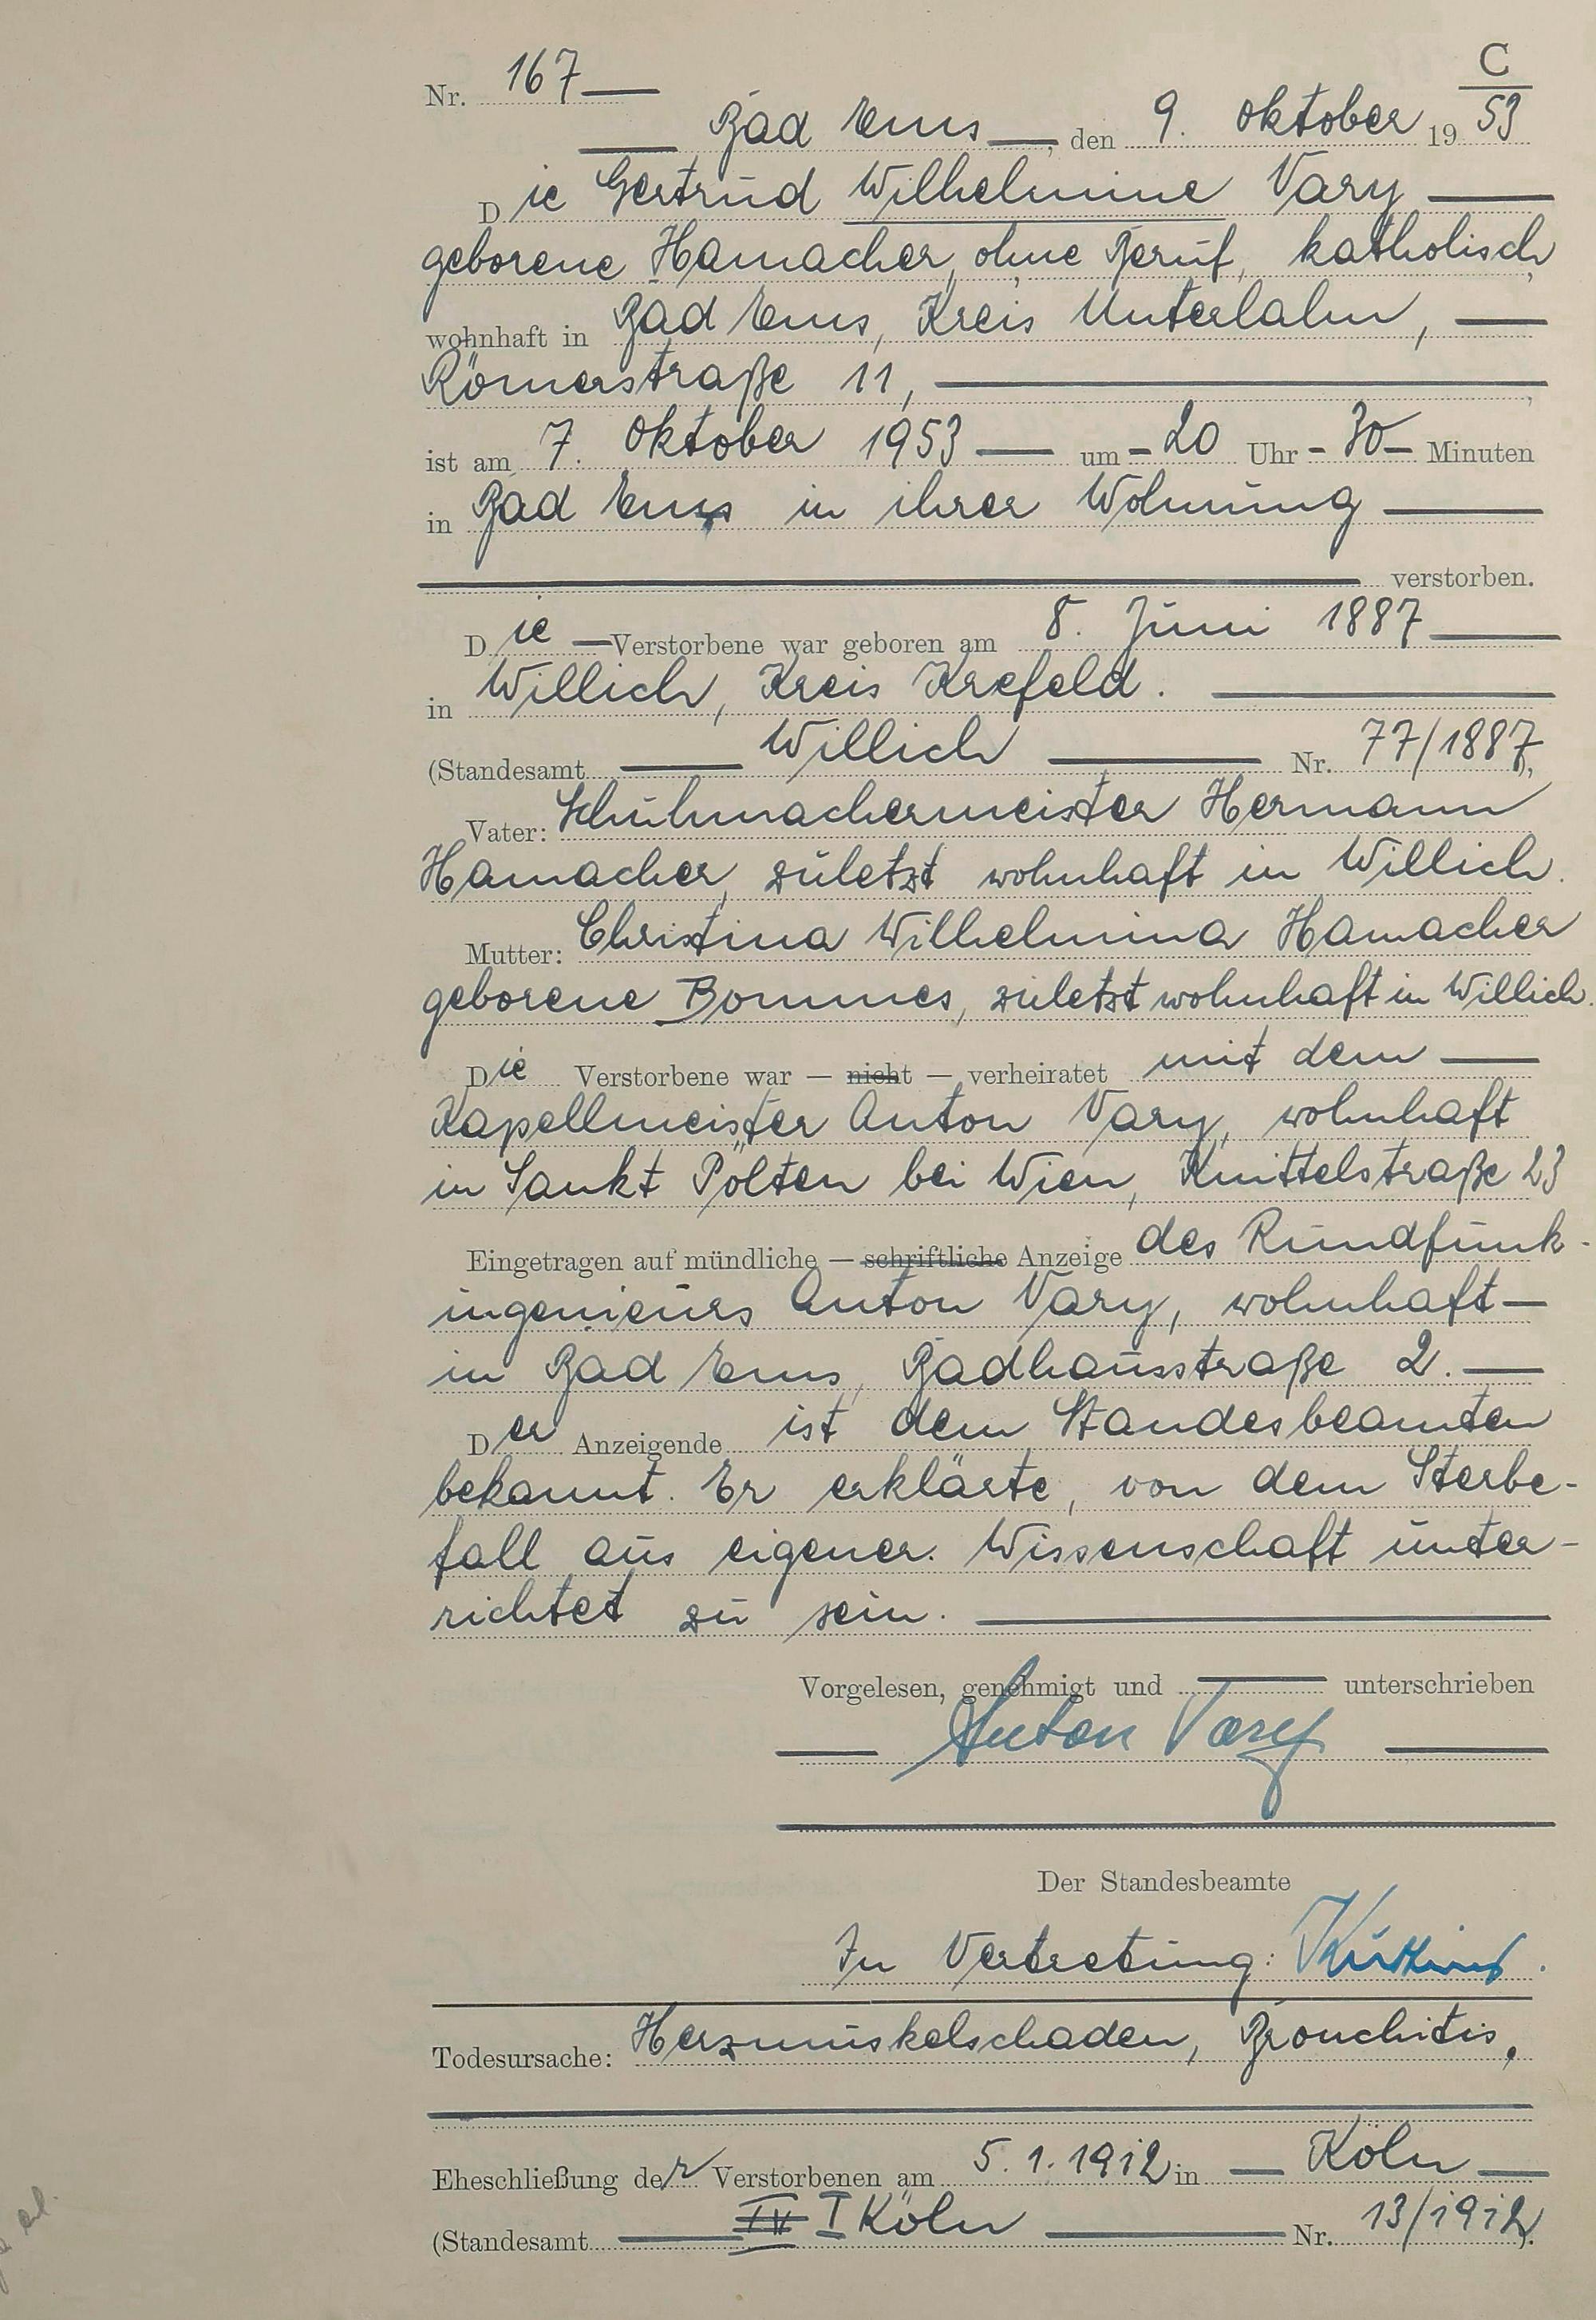 C
Nr. 167
Bad Ems, den 9. Oktober 1953
Die Gertrud Wilhelmine Vary
geborene Hamacher, ohne Beruf, katholisch,
wohnhaft in Bad Ems, Kreis Unterlahn,
Römerstraße 11,
ist am 7. Oktober 1953 um - 20 Uhr - 30 - Minuten
in Bad Ems in ihrer Wohnung
verstorben.
Die Verstorbene war geboren am 8. Juni 1887
in Willich, Kreis Krefeld.
(Standesamt Willich Nr. 77/1887),
Vater: Schuhmachermeister Hermann
Hamacher, zuletzt wohnhaft in Willich.
Mutter: Christina Wilhelmina Hamacher
geborene Bommes, zuletzt wohnhaft in Willich.
Die Verstorbene war — nicht — verheiratet mit dem
Kapellmeister Anton Vary, wohnhaft
in Sankt Pölten bei Wien, Knittelstraße 23
Eingetragen auf mündliche — schriftliche Anzeige des Rundfunk-
ingenieurs Anton Vary, wohnhaft
in Bad Ems, Badhausstraße 2.
Der Anzeigende ist dem Standesbeamten
bekannt. Er erklärte, von dem Sterbe-
fall aus eigener Wissenschaft unter-
richtet zu sein.
Vorgelesen, genehmigt und unterschrieben
Anton Vary
Der Standesbeamte
In Vertretung:
Todesursache: Herzmuskelschaden, Bronchitis,
Eheschließung der Verstorbenen am 5.1.1912 in Köln
(Standesamt IV I Köln Nr. 13/1912).